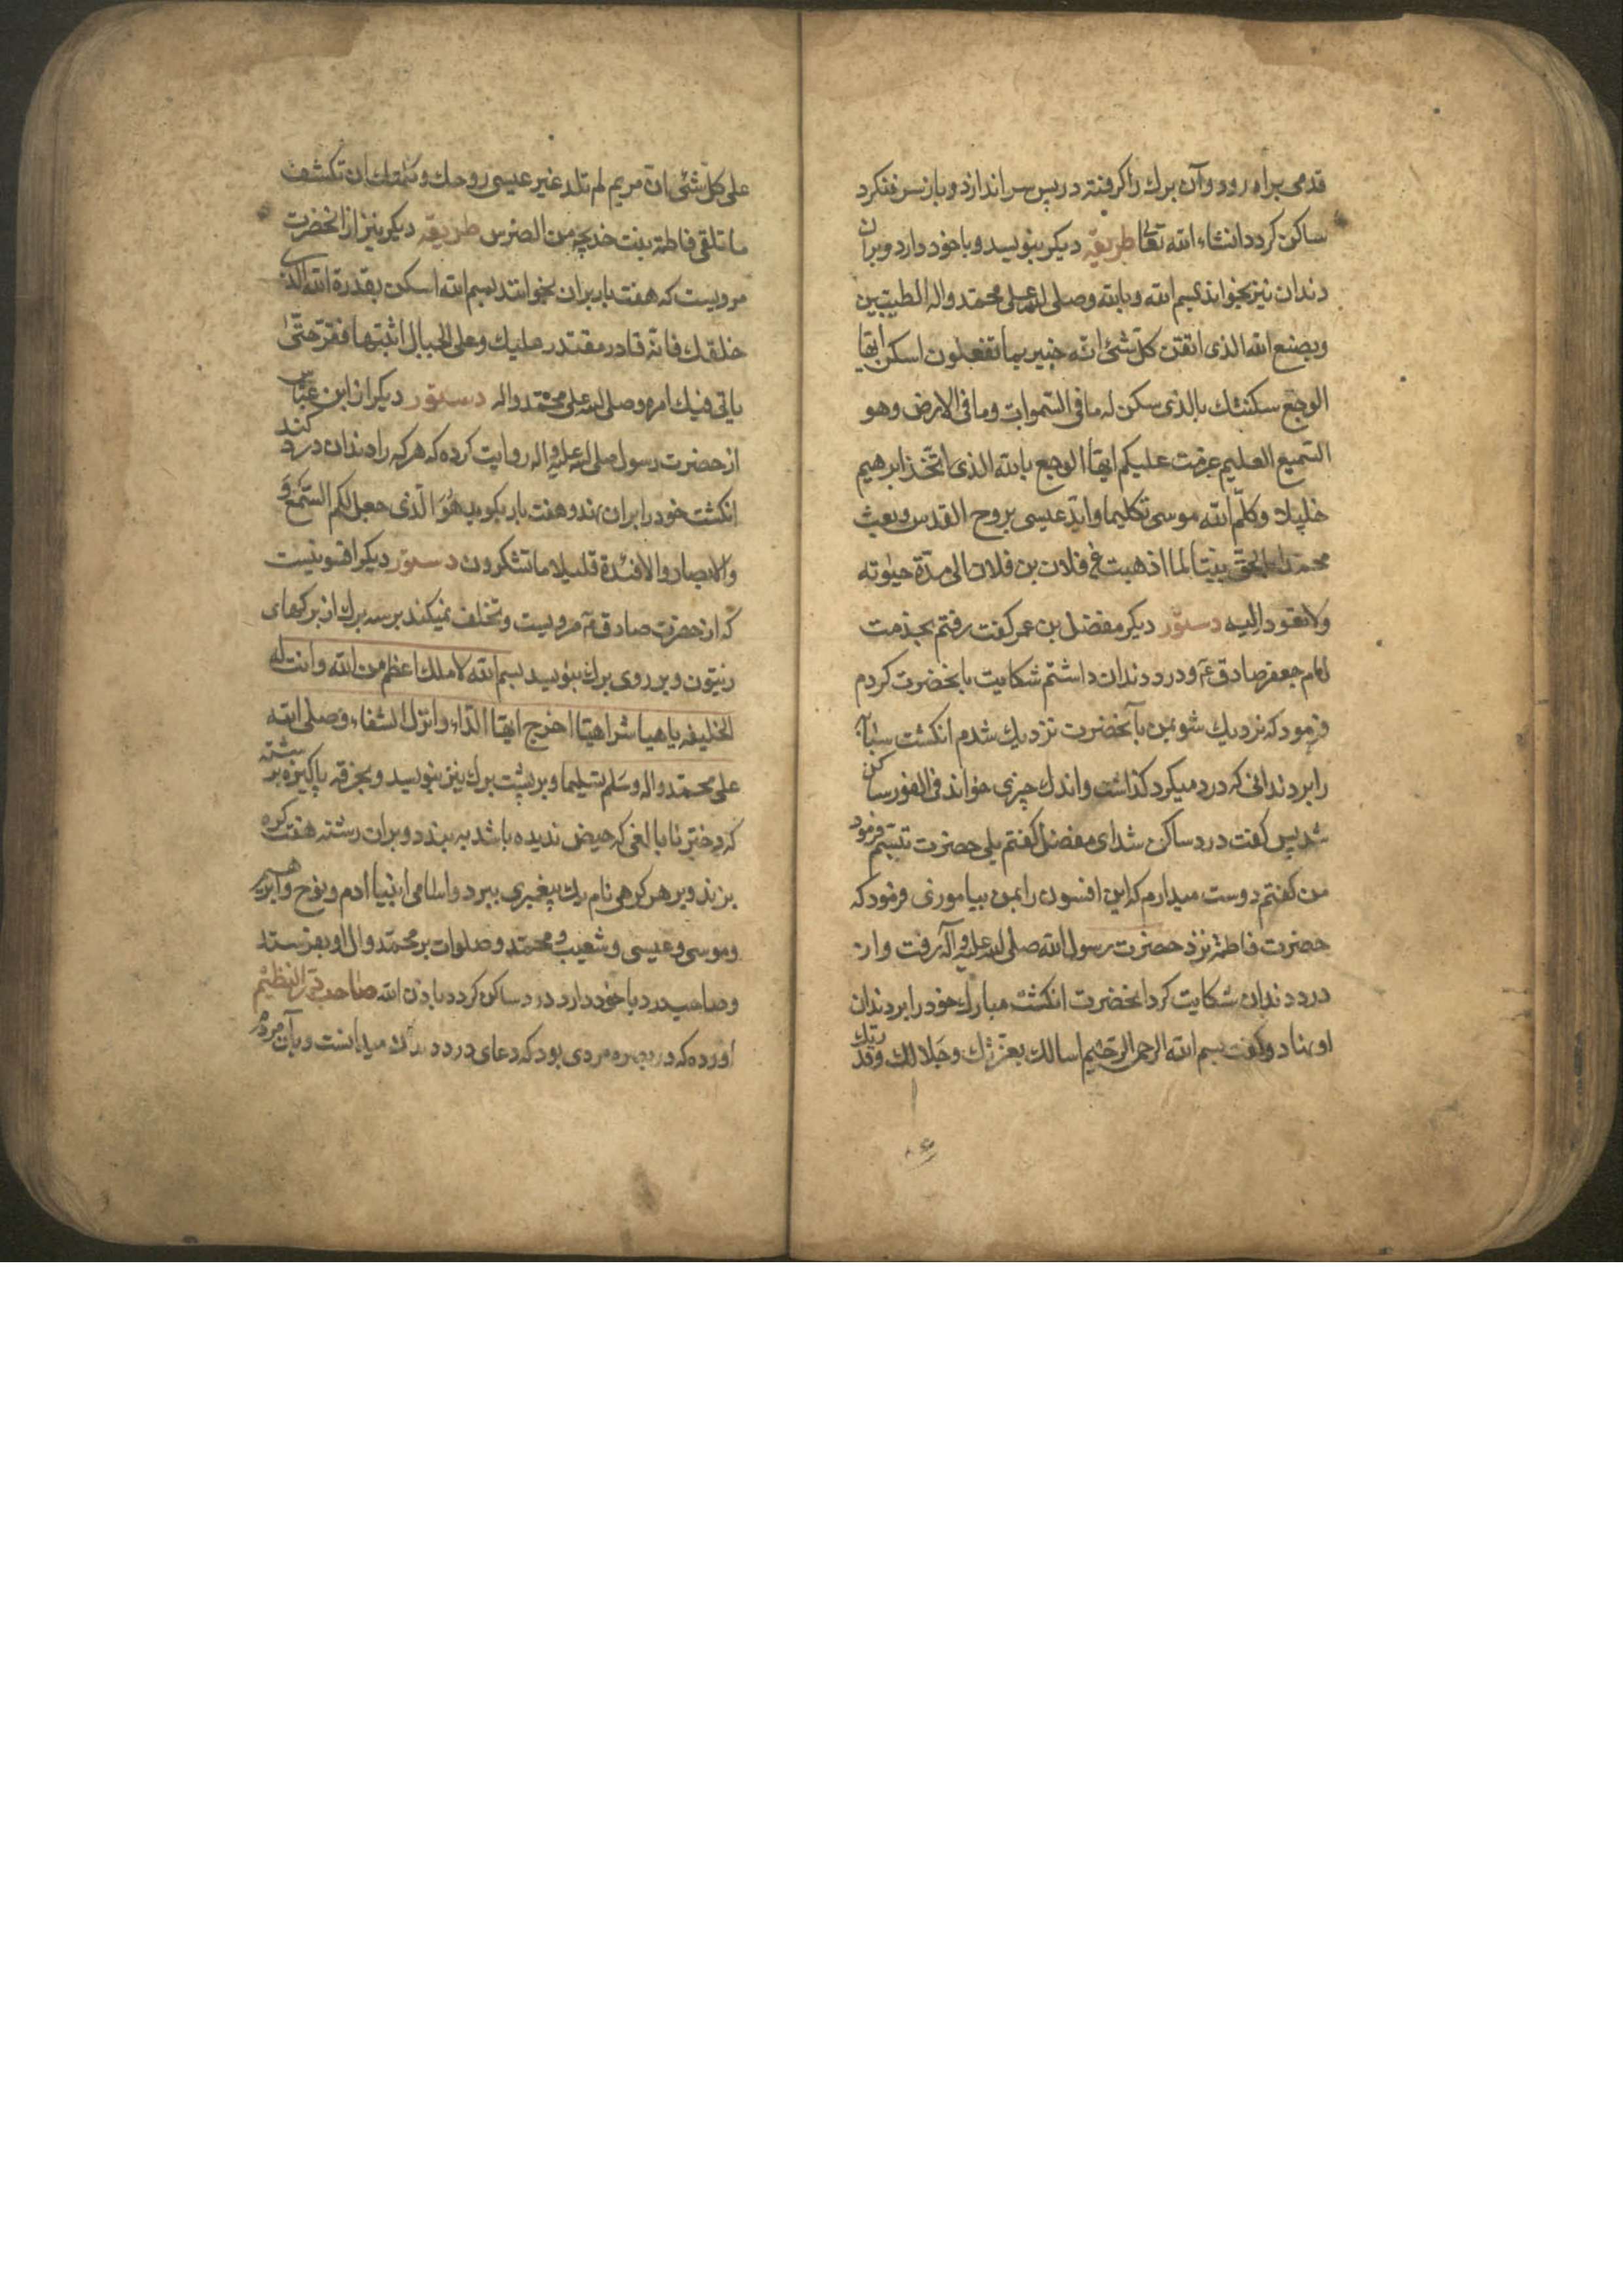 قدمی براه رود وآن برك را كرفته در پس سر اندازد و باز پس ننكرد
ساكن كردد انشاء الله تعالی طریقه دیكر بنویسد و با خود دارد و بران
دندان نیز بخواند بسم الله و بالله وصلی الله علی محمد واله الطیبین
وبصنع الله الذی اتقن كل شئ انه خبیر بما تفعلون اسكن ایها
الوجع سكنتك بالذی سكن له ما فی السموات وما فی الارض وهو
السمیع العلیم عزمت علیكم ایها الوجع بالله الذی اتخذ ابرهیم
خلیلا وكلم الله موسی تكلیما واید عیسی بروح القدس وبعث
محمدا بالحق نبیا لما اذهبت عن فلان بن فلان الی مدة حیوته
ولا تعود الیه دستور دیكر مفضل بن عمر كفت رفتم بخدمت
امام جعفر صادق ع و درد دندان داشتم شكایت بانحضرت كردم
فرمود كه نزدیك شو بمن بآنحضرت نزدیك شدم انكشت سبابه
را بر دندانی كه درد میكرد كذاشت واندك چیزی خواند فی الفور ساكن
شد پس كفت درد ساكن شد ای مفضل كفتم بلی حضرت تبسم فرمود
من كفتم دوست میدارم كه این افسون را بمن بیاموزی فرمود كه
حضرت فاطمه نزد حضرت رسول الله صلی الله علیه وآله رفت واز
درد دندان شكایت كرد انحضرت انكشت مبارك خود را بر دندان
او نهاد و كفت بسم الله الرحمن الرحیم اسالك بعزتك وجلالك وقدرتك
علی كل شئ ان مریم لم تلد غیر عیسی روحك وكلمتك ان تكشف
ما تلقی فاطمة بنت خدیجه من الضرس طریقه دیكر نیز از انحضرت
مرویست كه هفت بار بران بخوانند بسم الله اسكن بقدرة الله الذی
خلقك فانه قادر مقتدر علیك وعلی الجبال اثبتها فقر حتی
یاتی فیك امره وصلی الله علی محمد واله دستور دیكر از ابن عباس
از حضرت رسول صلی الله علیه واله روایت كرده كه هر كه را دندان درد كند
انكشت خود را بران نهد و هفت بار بكوید هو الذی جعل لكم السمع و
والابصار والافئدة قلیلا ما تشكرون دستور دیكر افسونیست
كه از حضرت صادق ع مرویست و تخلف نمیكند بر سه برك از بركهای
زیتون و بر روی برك بنویسد بسم الله لا ملك اعظم من الله وانت له
الخلیفه یا هیا شراهیا اخرج ایها الداء وانزل الشفاء وصلی الله
علی محمد واله وسلم تسلیما و بر پشت برك نیز بنویسد و بخرقه پاكیزه برشته
كه دختر نابالغی كه حیض ندیده باشد به بندد و بران رشته هفت كره
بزند و بر هر كرهی نام یك پیغمبری ببرد واسامی انبیا ادم و نوح و ابرهیم
وموسی وعیسی و شعیب و محمد و صلوات بر محمد وال او بفرستد
و صاحب درد با خود دارد درد ساكن كردد باذن الله صاحب در النظیم
اورده كه در بصره مردی بود كه دعای درد دندان میدانست و بآن مردم